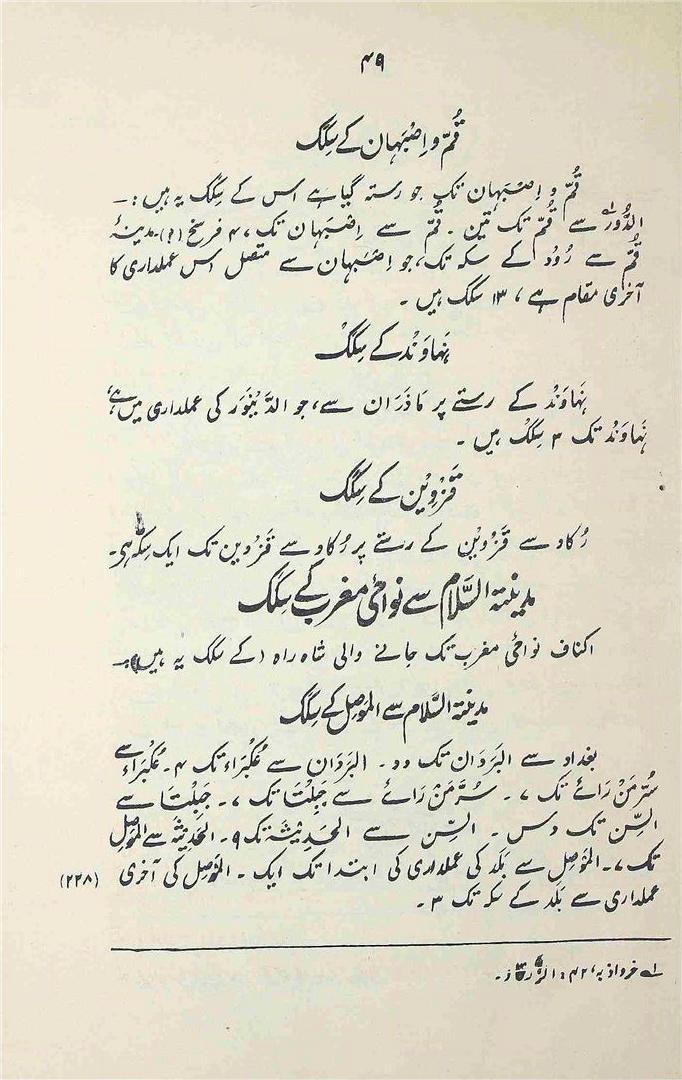 ۴۹
قُمّ و اِصْبَہان کے سِکَک
قُمّ و اِصْبَہان تک جو رستہ گیا ہے اس کے سِکَک یہ ہیں:۔
الدَّوْر؎۱ سے قُمّ تک تین ۔ قُمّ سے اِصْبَہان تک ۴۷ فرسخ (؟)۔ مدینۂ
قُمّ سے رُوْد کے سکہ تک، جو اِصْبَہان سے متصل اس عملداری کا
آخری مقام ہے، ۱۳ سِکَک ہیں ۔
نَہاوَنْد کے سِکَک
نَہَاوَنْد کے رستے پر مَاذَرَان سے، جو الدَّیْنَوَر کی عملداری میں ہے،
نَہَاوَنْد تک ۳ سِکَک ہیں ۔
قَزْوِیْن کے سِکَک
رُکاہ سے قَزْوِیْن کے رستے پر رُکاہ سے قَزْوِیْن تک ایک سِکّہ ہی۔
مدینۃ السَّلَام سے نواحیٔ مغرب کے سِکَک
اکنافِ نواحیٔ مغرب تک جانے والی شاہ راہ (کے سِکَک یہ ہیں)۔
مدینۃ السَّلَام سے المَوْصِل کے سِکَک
بغداد سے البَرَدَان تک دو ۔ البَرَدَان سے عُکْبَرَاء تک ۴۔ عُکْبَرَاء سے
سُرَّ مَنْ رَائے تک ۷ ۔ سُرَّ مَنْ رَائے سے جَبِلْتَا تک ۷ ۔ جَبِلْتَا سے
السِّن تک دس ۔ السِّن سے الحَدِیْثَۃ تک ۹ ۔ الحَدِیْثَۃ سے المَوْصِل
تک ۷ ۔ المَوْصِل سے بَلَد کی عملداری کی ابتدا تک ایک ۔ المَوْصِل کی آخری (۲۲۸)
عملداری سے بَلَد کے سکہ تک ۳ ۔
؎۱ خرداذبہ، ۴۲: